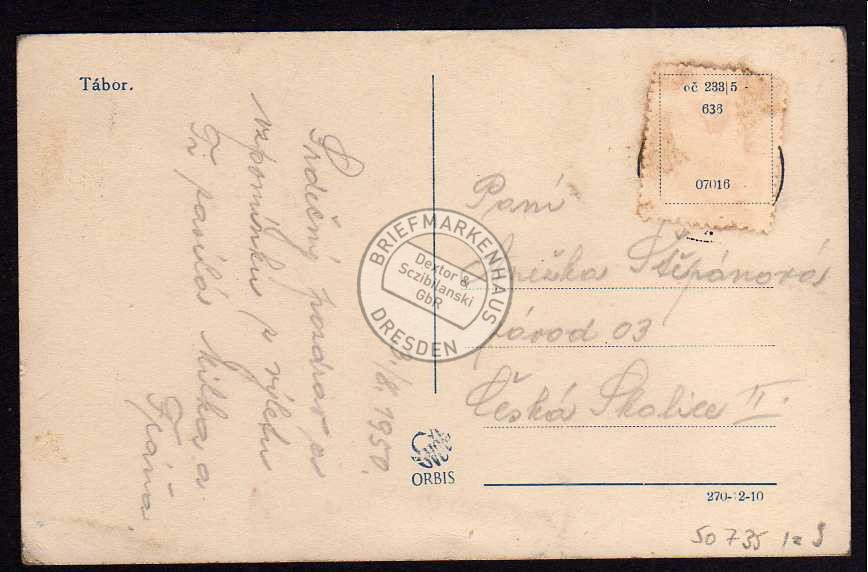 Tábor.
3/8. 1950.
Srdečný pozdrav a
vzpomínku z výletu
Ti posílá Milka a
Fráňa.
oč 233|5
636
07016
Paní
Anežka Štěpánová
závod 03
Česká Skalice II.
BRIEFMARKENHAUS
Dextor &
Sczibilanski
GbR
DRESDEN
ORBIS
270-12-10
50735